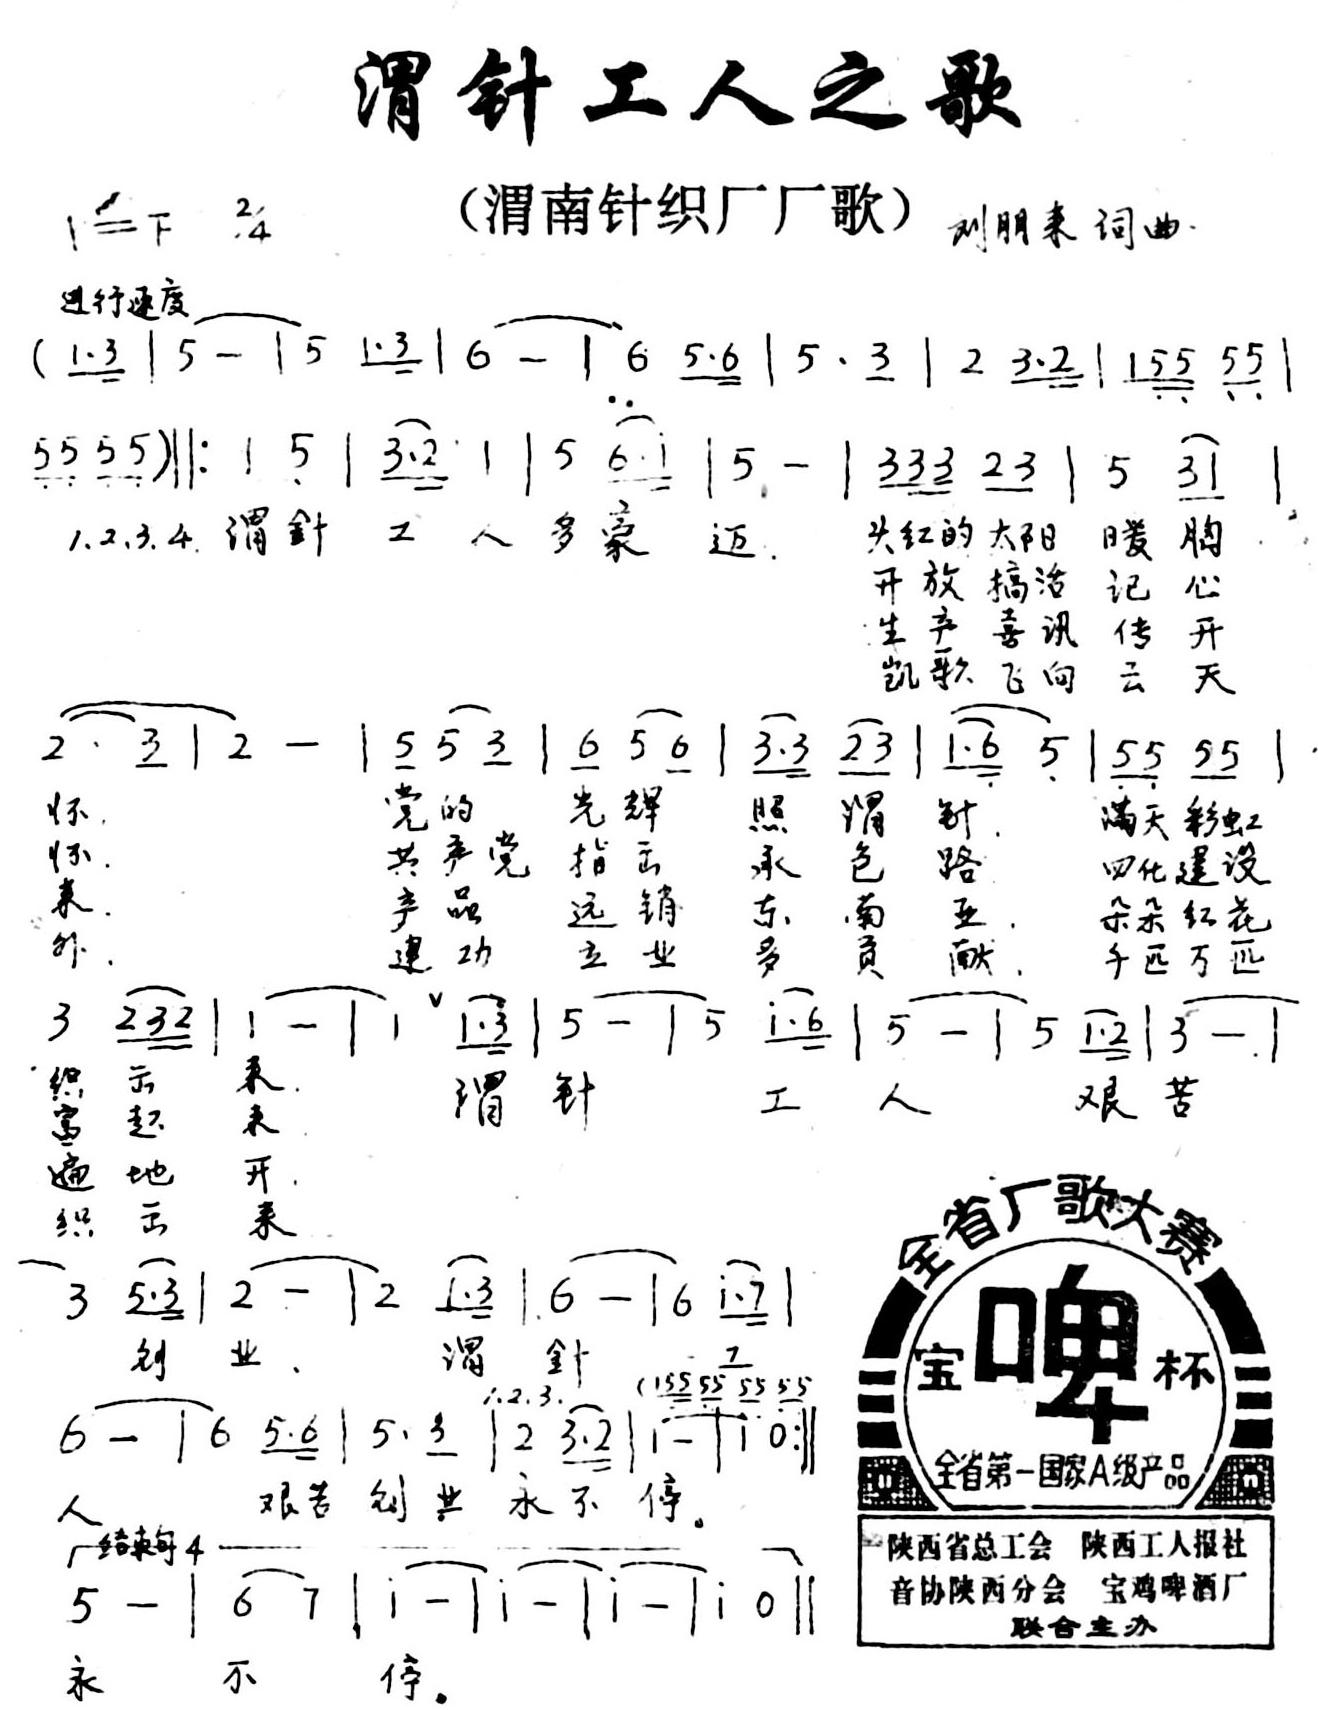 渭针工人之歌
(渭南针织厂厂歌)
1=F 2/4
刘朋来 词曲.
进行速度
( 1·3 | 5 - | 5 1·3 | 6 - | 6 5·6 | 5· 3 | 2 3·2 | 155 55 |
55 55 )‖: 1 5 | 3·2 1 | 5 6·1 | 5 - | 333 23 | 5 31 |
1.2.3.4. 渭針 工 人 多豪 迈. 头红的 太阳 暖 胸
开 放 搞活 记 心
生 产 喜 讯 传 开
凯歌 飞向 云 天
2· 3 | 2 - | 5 5 3 | 6 5 6 | 3·3 23 | 1·6 5 | 55 55 |
怀. 党的 光辉 照 渭 针. 满天彩虹
怀. 共产党 指出 承 包 路 四化建设
来. 产 品 远 销 东 南 亚. 朵朵红花
外. 建 功 立 业 多 贡 献. 千匹万匹
3 232 | 1 - | 1 ∨ 1·3 | 5 - | 5 i·6 | 5 - | 5 1·2 | 3 - |
织 出 来. 渭 针 工 人 艰 苦
富 起 来
遍 地 开.
织 出 来
3 5·3 | 2 - | 2 1·3 | 6 - | 6 i·7 |
创 业. 渭 針 工
1.2.3. (155 55 55 55
6 - | 6 5·6 | 5· 3 | 2 3·2 | i - | i 0 :‖
人 艰苦 创 业 永 不 停。
结束句 4
5 - | 6 7 | i - | i - | i - | i 0 ‖
永 不 停。
全省厂歌大赛
宝 啤 杯
全省第一国家A级产品
陕西省总工会 陕西工人报社
音协陕西分会 宝鸡啤酒厂
联合主办